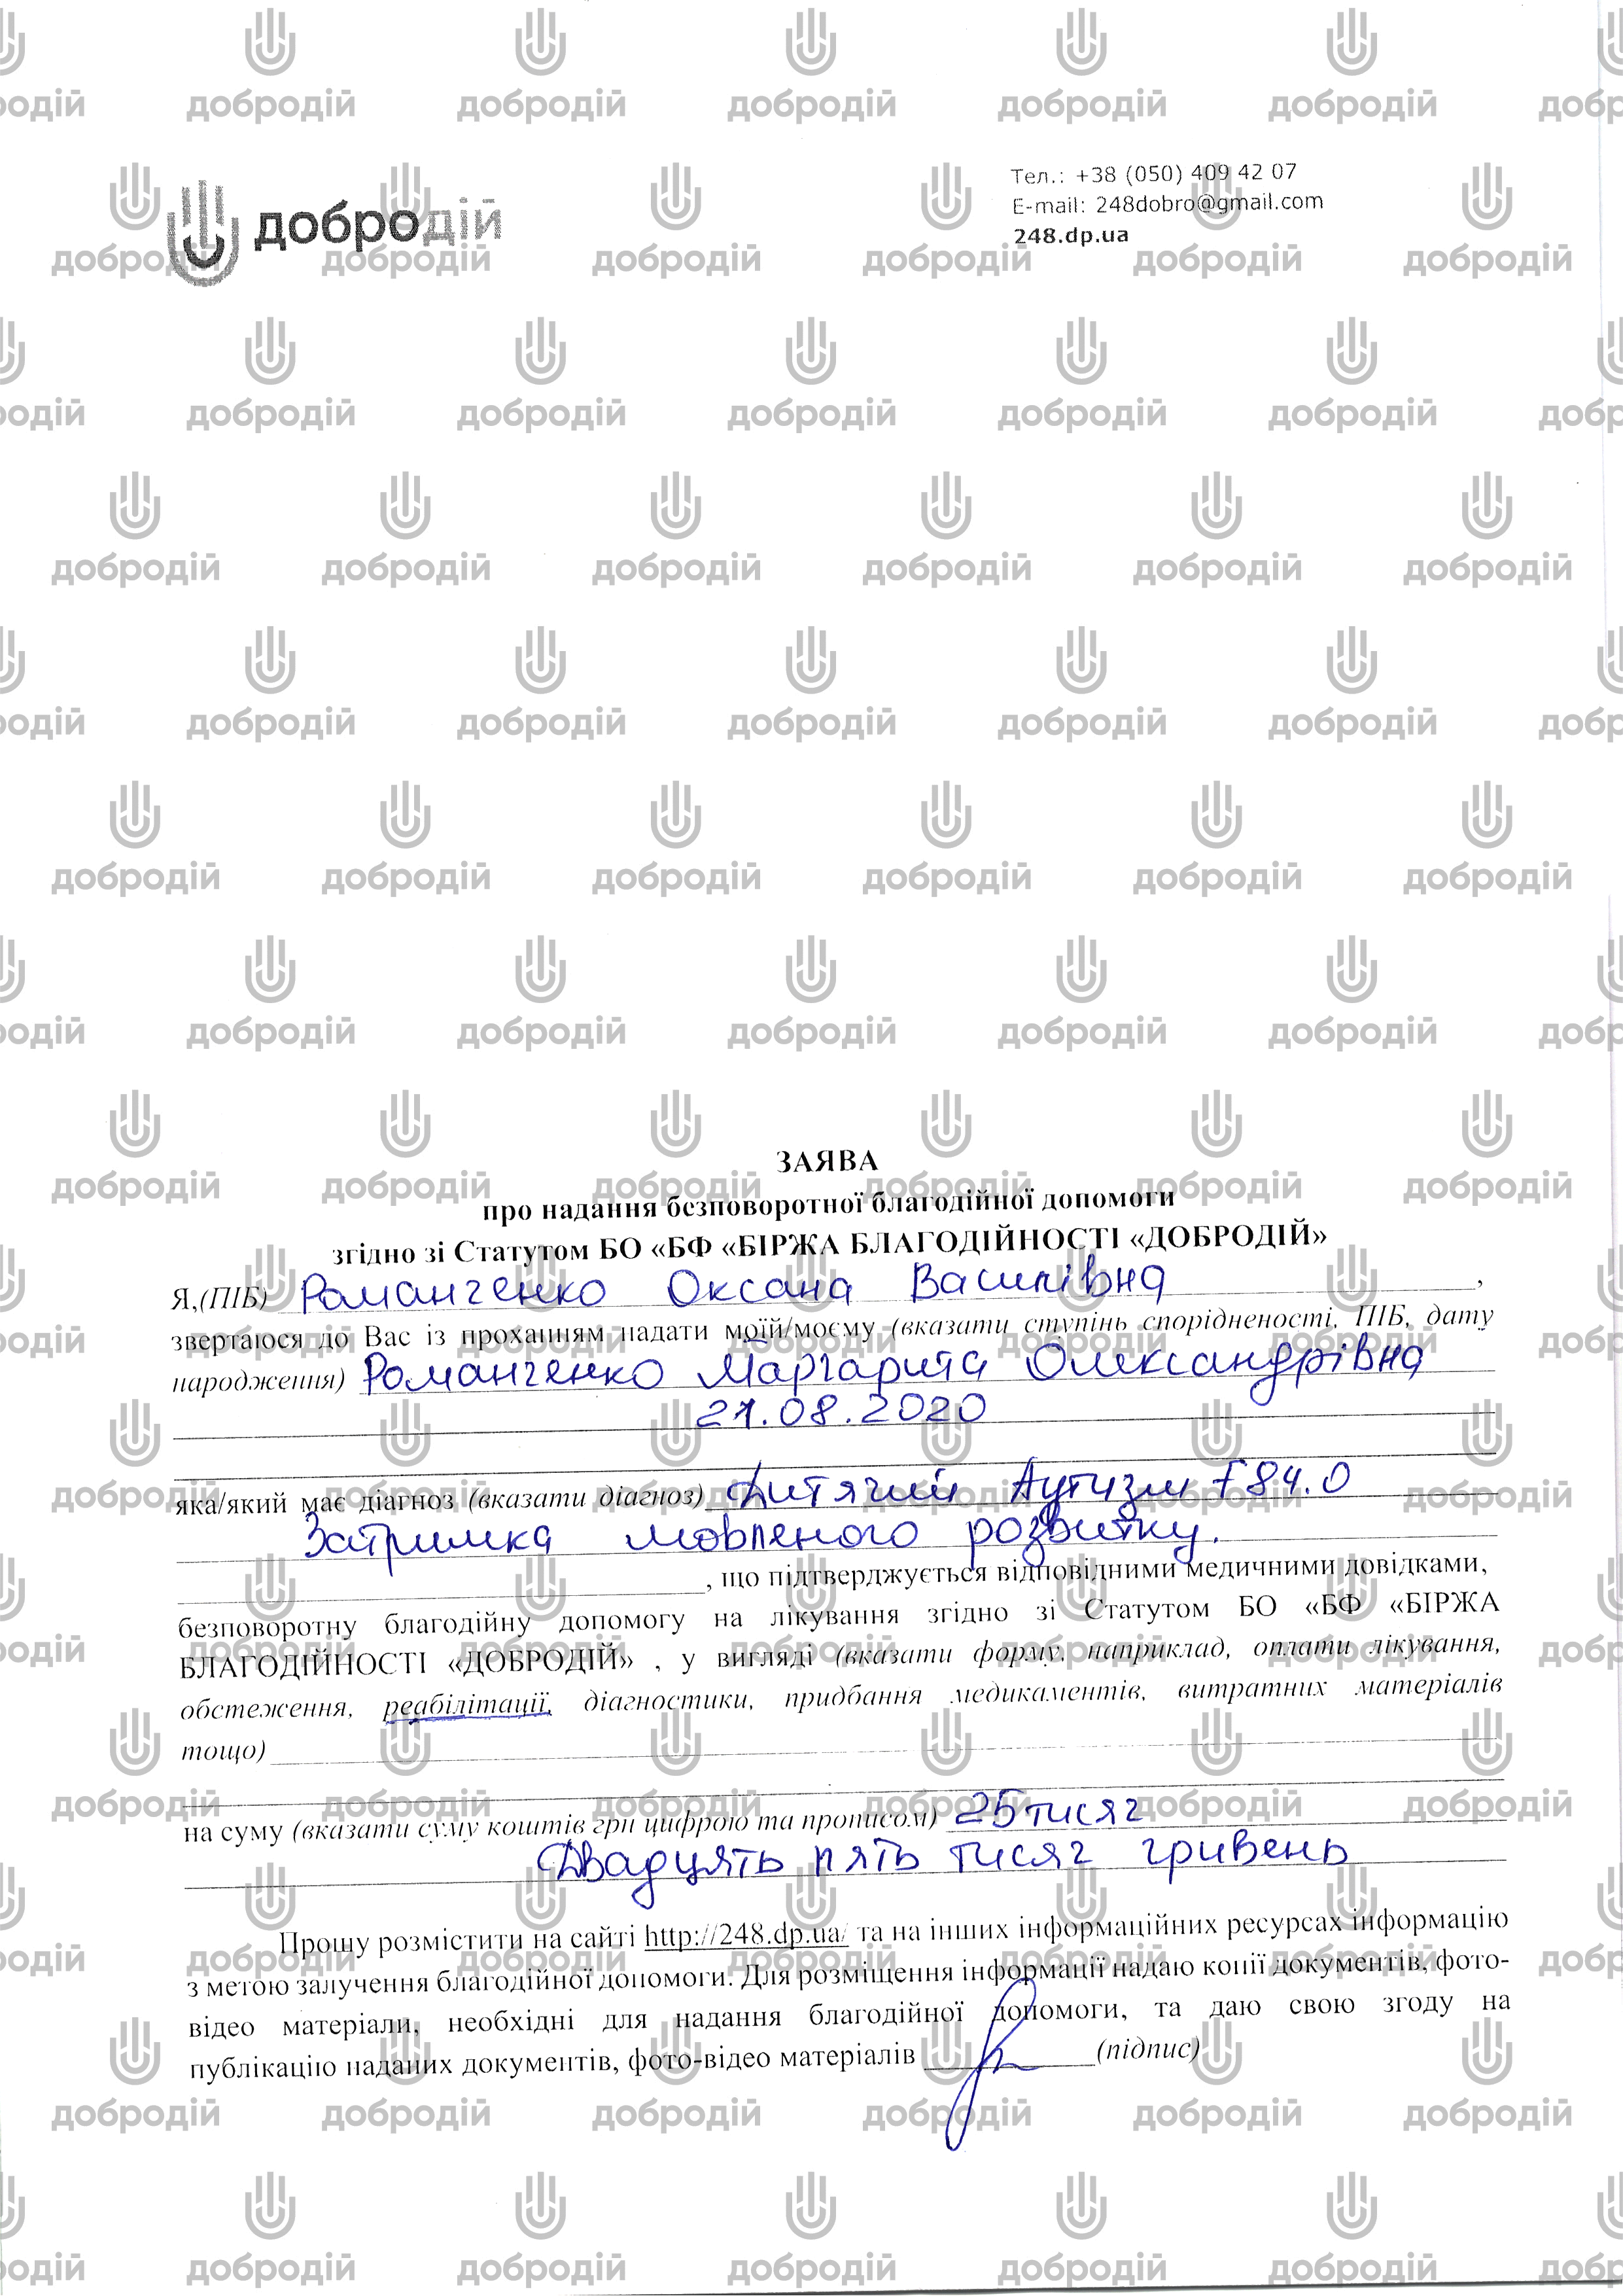 добродій
Тел.: +38 (050) 409 42 07
E-mail: 248dobro@gmail.com
248.dp.ua
ЗАЯВА
про надання безповоротної благодійної допомоги
згідно зі Статутом БО «БФ «БІРЖА БЛАГОДІЙНОСТІ «ДОБРОДІЙ»
Я,(ПІБ) Романченко Оксана Василівна,
звертаюся до Вас із проханням надати моїй/моєму (вказати ступінь спорідненості, ПІБ, дату
народження) Романченко Маргарита Олександрівна
21.08.2020
яка/який має діагноз (вказати діагноз) Дитячий Аутизм F84.0
Затримка мовленого розвитку.
, що підтверджується відповідними медичними довідками,
безповоротну благодійну допомогу на лікування згідно зі Статутом БО «БФ «БІРЖА
БЛАГОДІЙНОСТІ «ДОБРОДІЙ» , у вигляді (вказати форму, наприклад, оплати лікування,
обстеження, реабілітації, діагностики, придбання медикаментів, витратних матеріалів
тощо)
на суму (вказати суму коштів грн цифрою та прописом) 25 тисяч
Двадцять пять тисяч гривень
Прошу розмістити на сайті http://248.dp.ua/ та на інших інформаційних ресурсах інформацію
з метою залучення благодійної допомоги. Для розміщення інформації надаю копії документів, фото-
відео матеріали, необхідні для надання благодійної допомоги, та даю свою згоду на
публікацію наданих документів, фото-відео матеріалів (підпис)